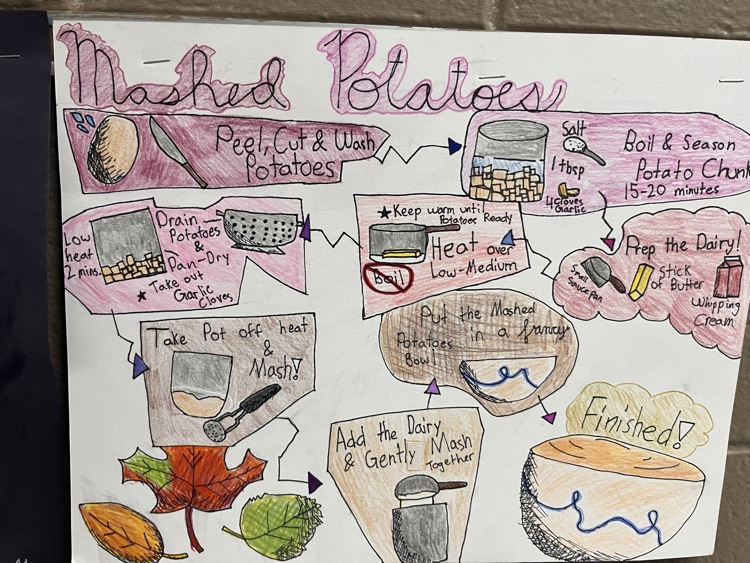 Mashed Potatoes
Peel, Cut & Wash
Potatoes
Salt
1 tbsp
4 cloves
Garlic
Boil & Season
Potato Chunk
15-20 minutes
Prep the Dairy!
Small
Sauce pan
1 stick
of Butter
Whipping
Cream
★ Keep warm until
Potatoes Ready
Heat over
Low-Medium
Boil
Low
heat
2 mins.
Drain
Potatoes
&
Pan-Dry
★ Take out
Garlic
Cloves
Take Pot off heat
&
Mash!
Add the Dairy
& Gently Mash
Together
Put the Mashed
Potatoes in a fancy
Bowl
Finished!